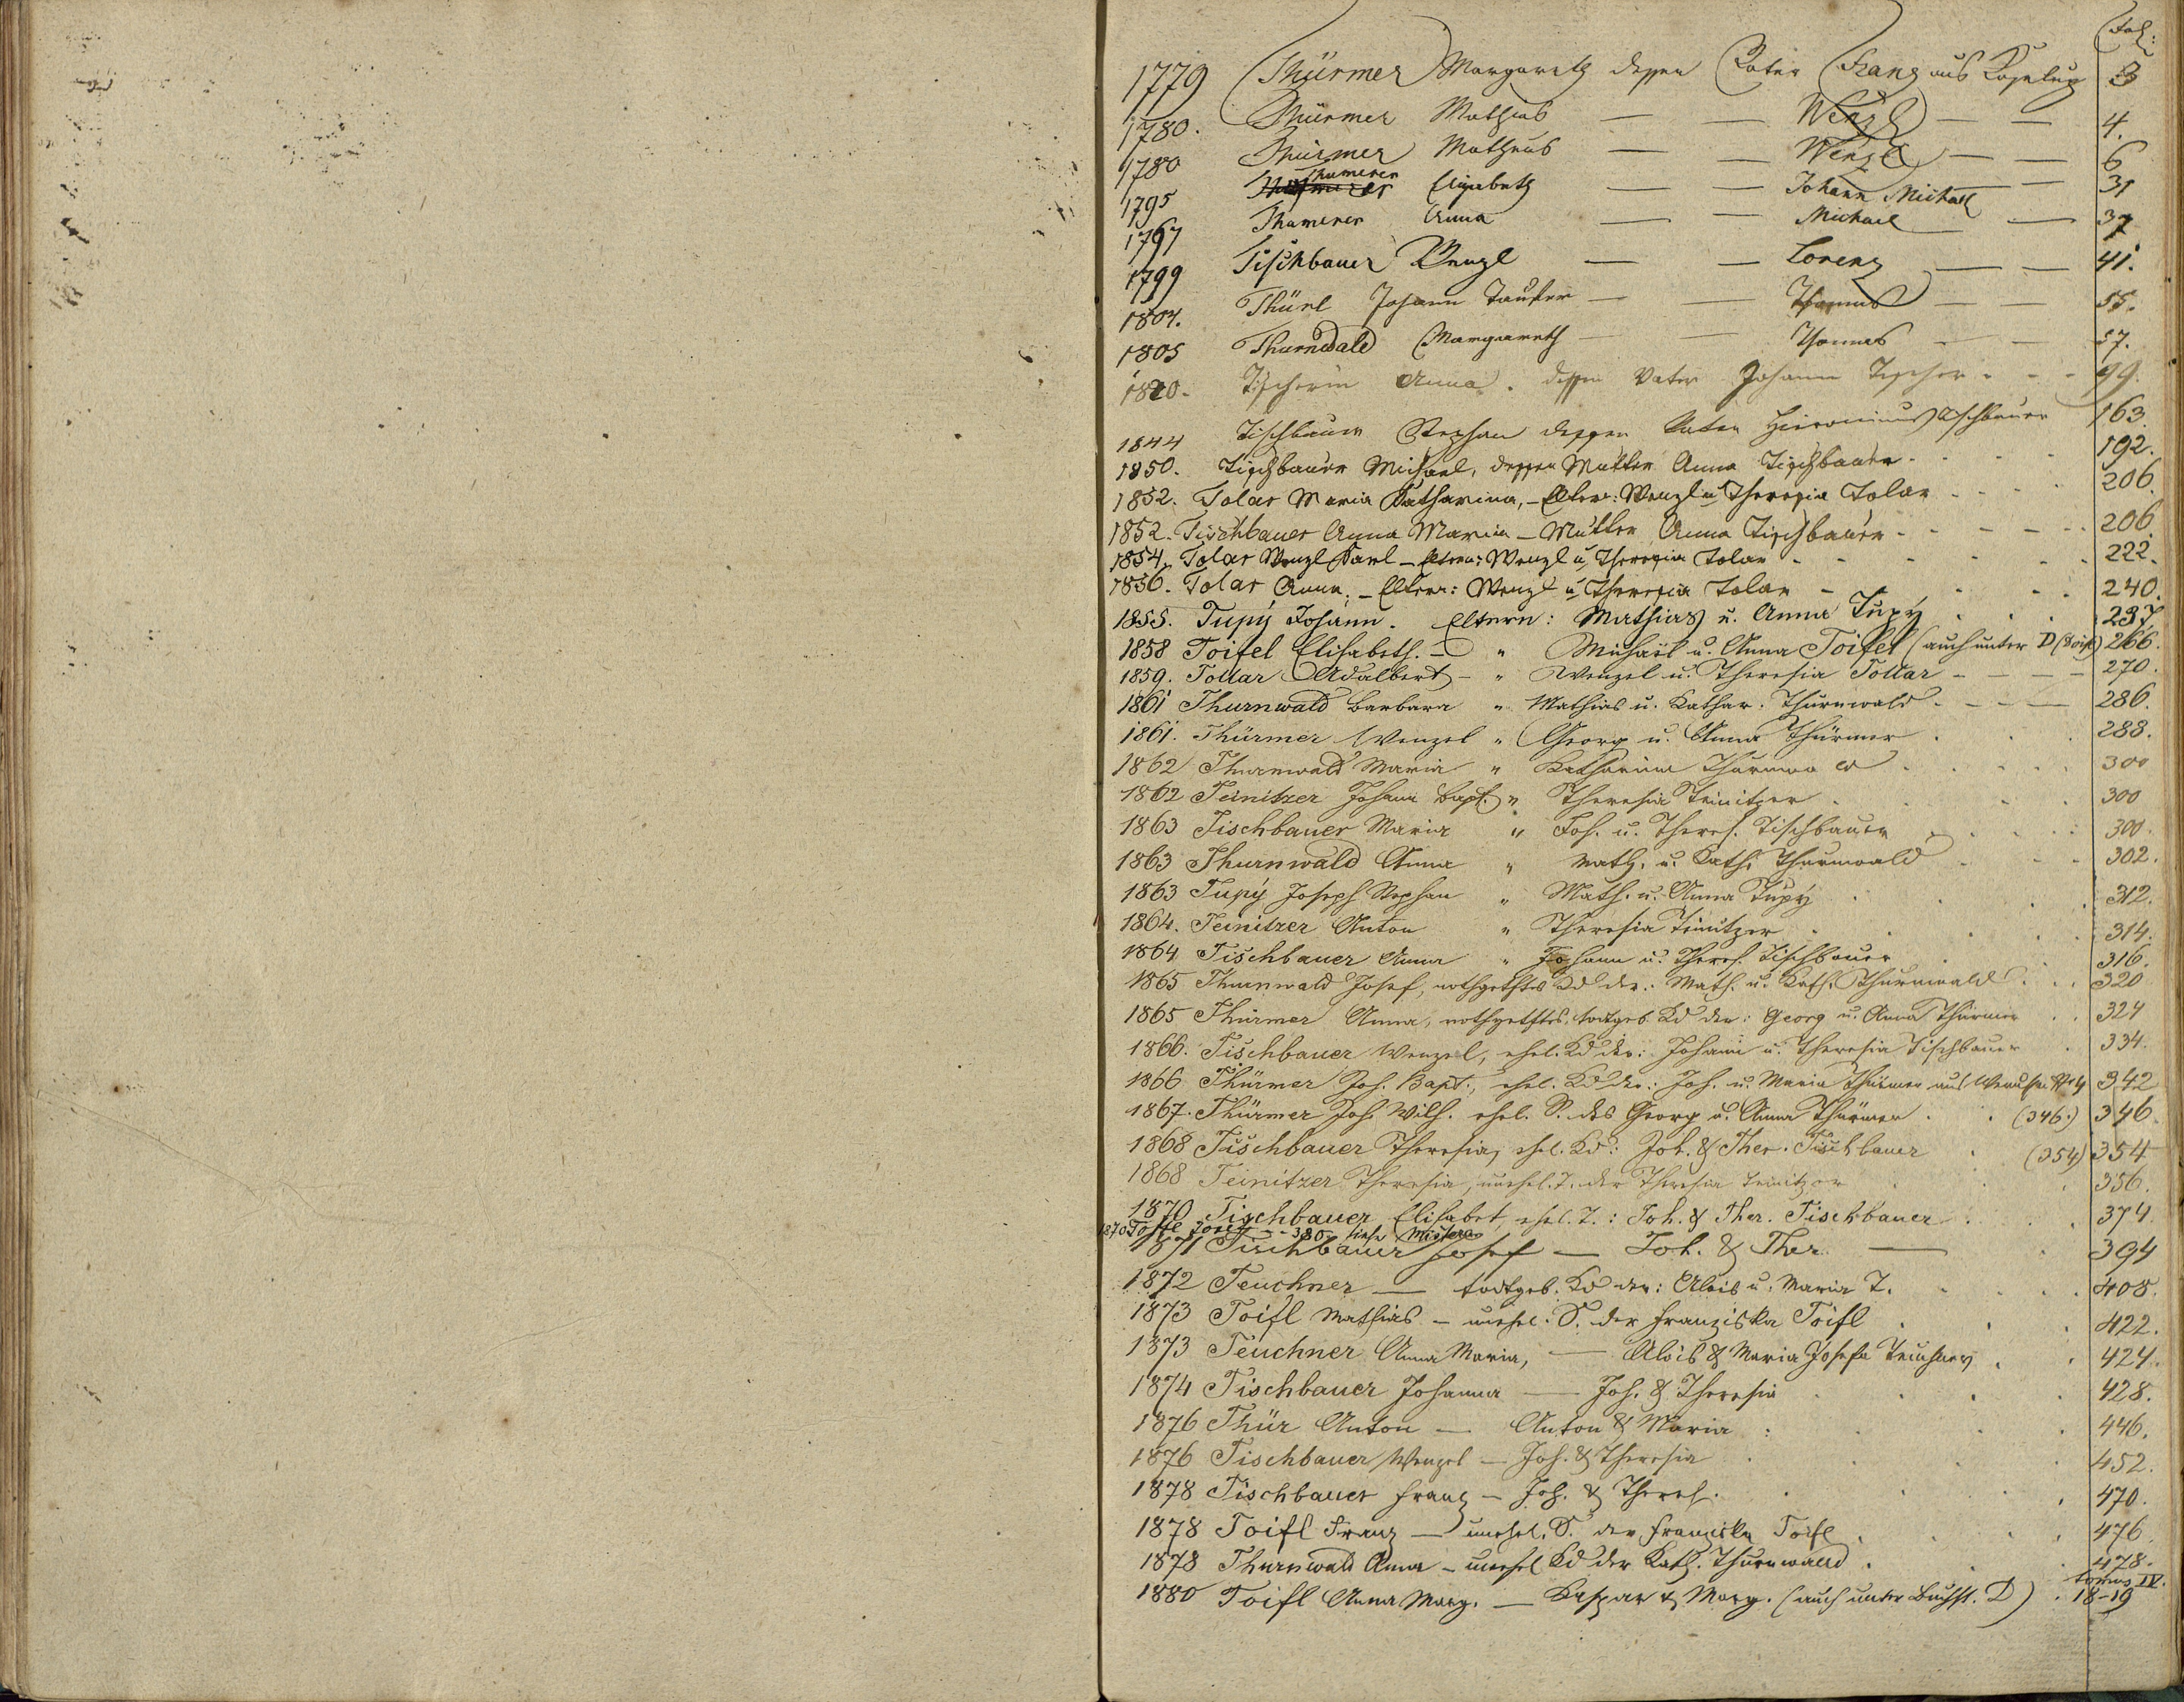 Fol:
1779 Thürmer Margareth dessen Vater Franz aus 3
1780. Thürmer Mathias — — Wenzl — — 4.
1780 Thürmer Matheus — — Wenzl — — 6
1795 Thumerer Elisabeth — — Johann Michael 31
1767 Thumerer Anna — — Michael — 37
1799 Tischbauer Wenzl — — Lorenz — — 41.
1804. Thürl Johann — — Thomas — — 55.
1805 Thurnwald Margareth — — Thomas — — 57.
1820. Tischerin Anna. dessen Vater Johann Tischer - - - 99.
1844 Tischbauer Stephan dessen Vater Hieronimus Tischbauer 163.
1850. Tischbauer Michael, dessen Mutter Anna Tischbauer . . . . 192.
1852. Tolar Maria Katharina, - Eltern: Wenzl u Theresia Tolar . . . . 206.
1852. Tischbauer Anna Maria - Mutter Anna Tischbauer - - - - 206.
1854. Tolar Wenzl Karl - Eltern: Wenzl u Theresia Tolar - - - 222.
1856. Tolar Anna. - Eltern: Wenzl u Theresia Tolar - - - 240.
1855. Tupý Johann. Eltern: Mathias u. Anna Tupý . . . 237.
1858 Toifel Elisabeth. - " Michael u. Anna Toifel (auch unter D (Doifl) 266.
1859. Tollar Adalbert - " Wenzel u. Theresia Tollar - - - - 270.
1861 Thurnwald Barbara " Mathias u. Kathar. Thurnwald - - - - 286.
1861. Thürmer Wenzel " Georg u. Anna Thürmer . . . 288.
1862 Thurnwald Maria " Katharina Thurnwald . . . . 300
1862 Teinitzer Johann Bapt. " Theresia Teinitzer . . . 300
1863 Tischbauer Maria " Joh. u. Theres. Tischbauer . . . . 300.
1863 Thurnwald Anna " Math. u. Kath. Thurnwald . . . 302.
1863 Tupý Joseph Stephan " Math. u. Anna Tupý . . . 312.
1864. Teinitzer Anton " Theresia Teinitzer . . . . 314.
1864 Tischbauer Anna " Johann u. Theres. Tischbauer . . . 316.
1865 Thurnwald Josef, nothgetftes Kd der: Math. u. Kath. Thurnwald . . . 320
1865 Thürmer Anna, nothgetftes, todtgeb. Kd der: Georg u. Anna Thürmer . . 324
1866. Tischbauer Wenzel, ehel. Kd der: Johann u. Theresia Tischbauer . 334.
1866 Thürmer Joh. Bapt., ehel. Kd der: Joh. u. Maria Thürmer aus 342
1867. Thürmer Joh Wilh. ehel. S. des Georg u. Anna Thürmer . . (346.) 346.
1868 Tischbauer Theresia, ehel. Kd: Joh. & Ther. Tischbauer . (354) 354
1868 Teinitzer Theresia, unehel. T. der Theresia Teinitzer . . . 356.
1870 Tischbauer Elisabet, ehel. T.: Joh. & Ther. Tischbauer . . . 374
1870 Toffl Josef - - 380 - siehe Mistera
1871 Tischbauer Josef — Joh. & Ther. — . 394
1872 Teuchner — todtgeb. Kd der: Alois u. Maria T. . . . . 408.
1873 Toifl Mathias - unehel. S. der Franziska Toifl . . . 422.
1873 Teuchner Anna Maria, — Alois & Maria Josefa Teuchner . . 424.
1874 Tischbauer Johanna — Joh. & Theresia . . . . 428.
1876 Thür Anton — Anton & Maria . . . 446.
1876 Tischbauer Wenzel — Joh. & Theresia . . . . 452.
1878 Tischbauer Franz - Joh. & Theres. . . . . 470.
1878 Toifl Franz — unehel. S. der Franziska Toifl . . . . 476.
1878 Thurnwald Anna - unehel Kd der Kath. Thurnwald . . . 478.
tomus IV.
1880 Toifl Anna Marg. — Kaspar & Marg. (auch unter Buchst. D) . 18-19